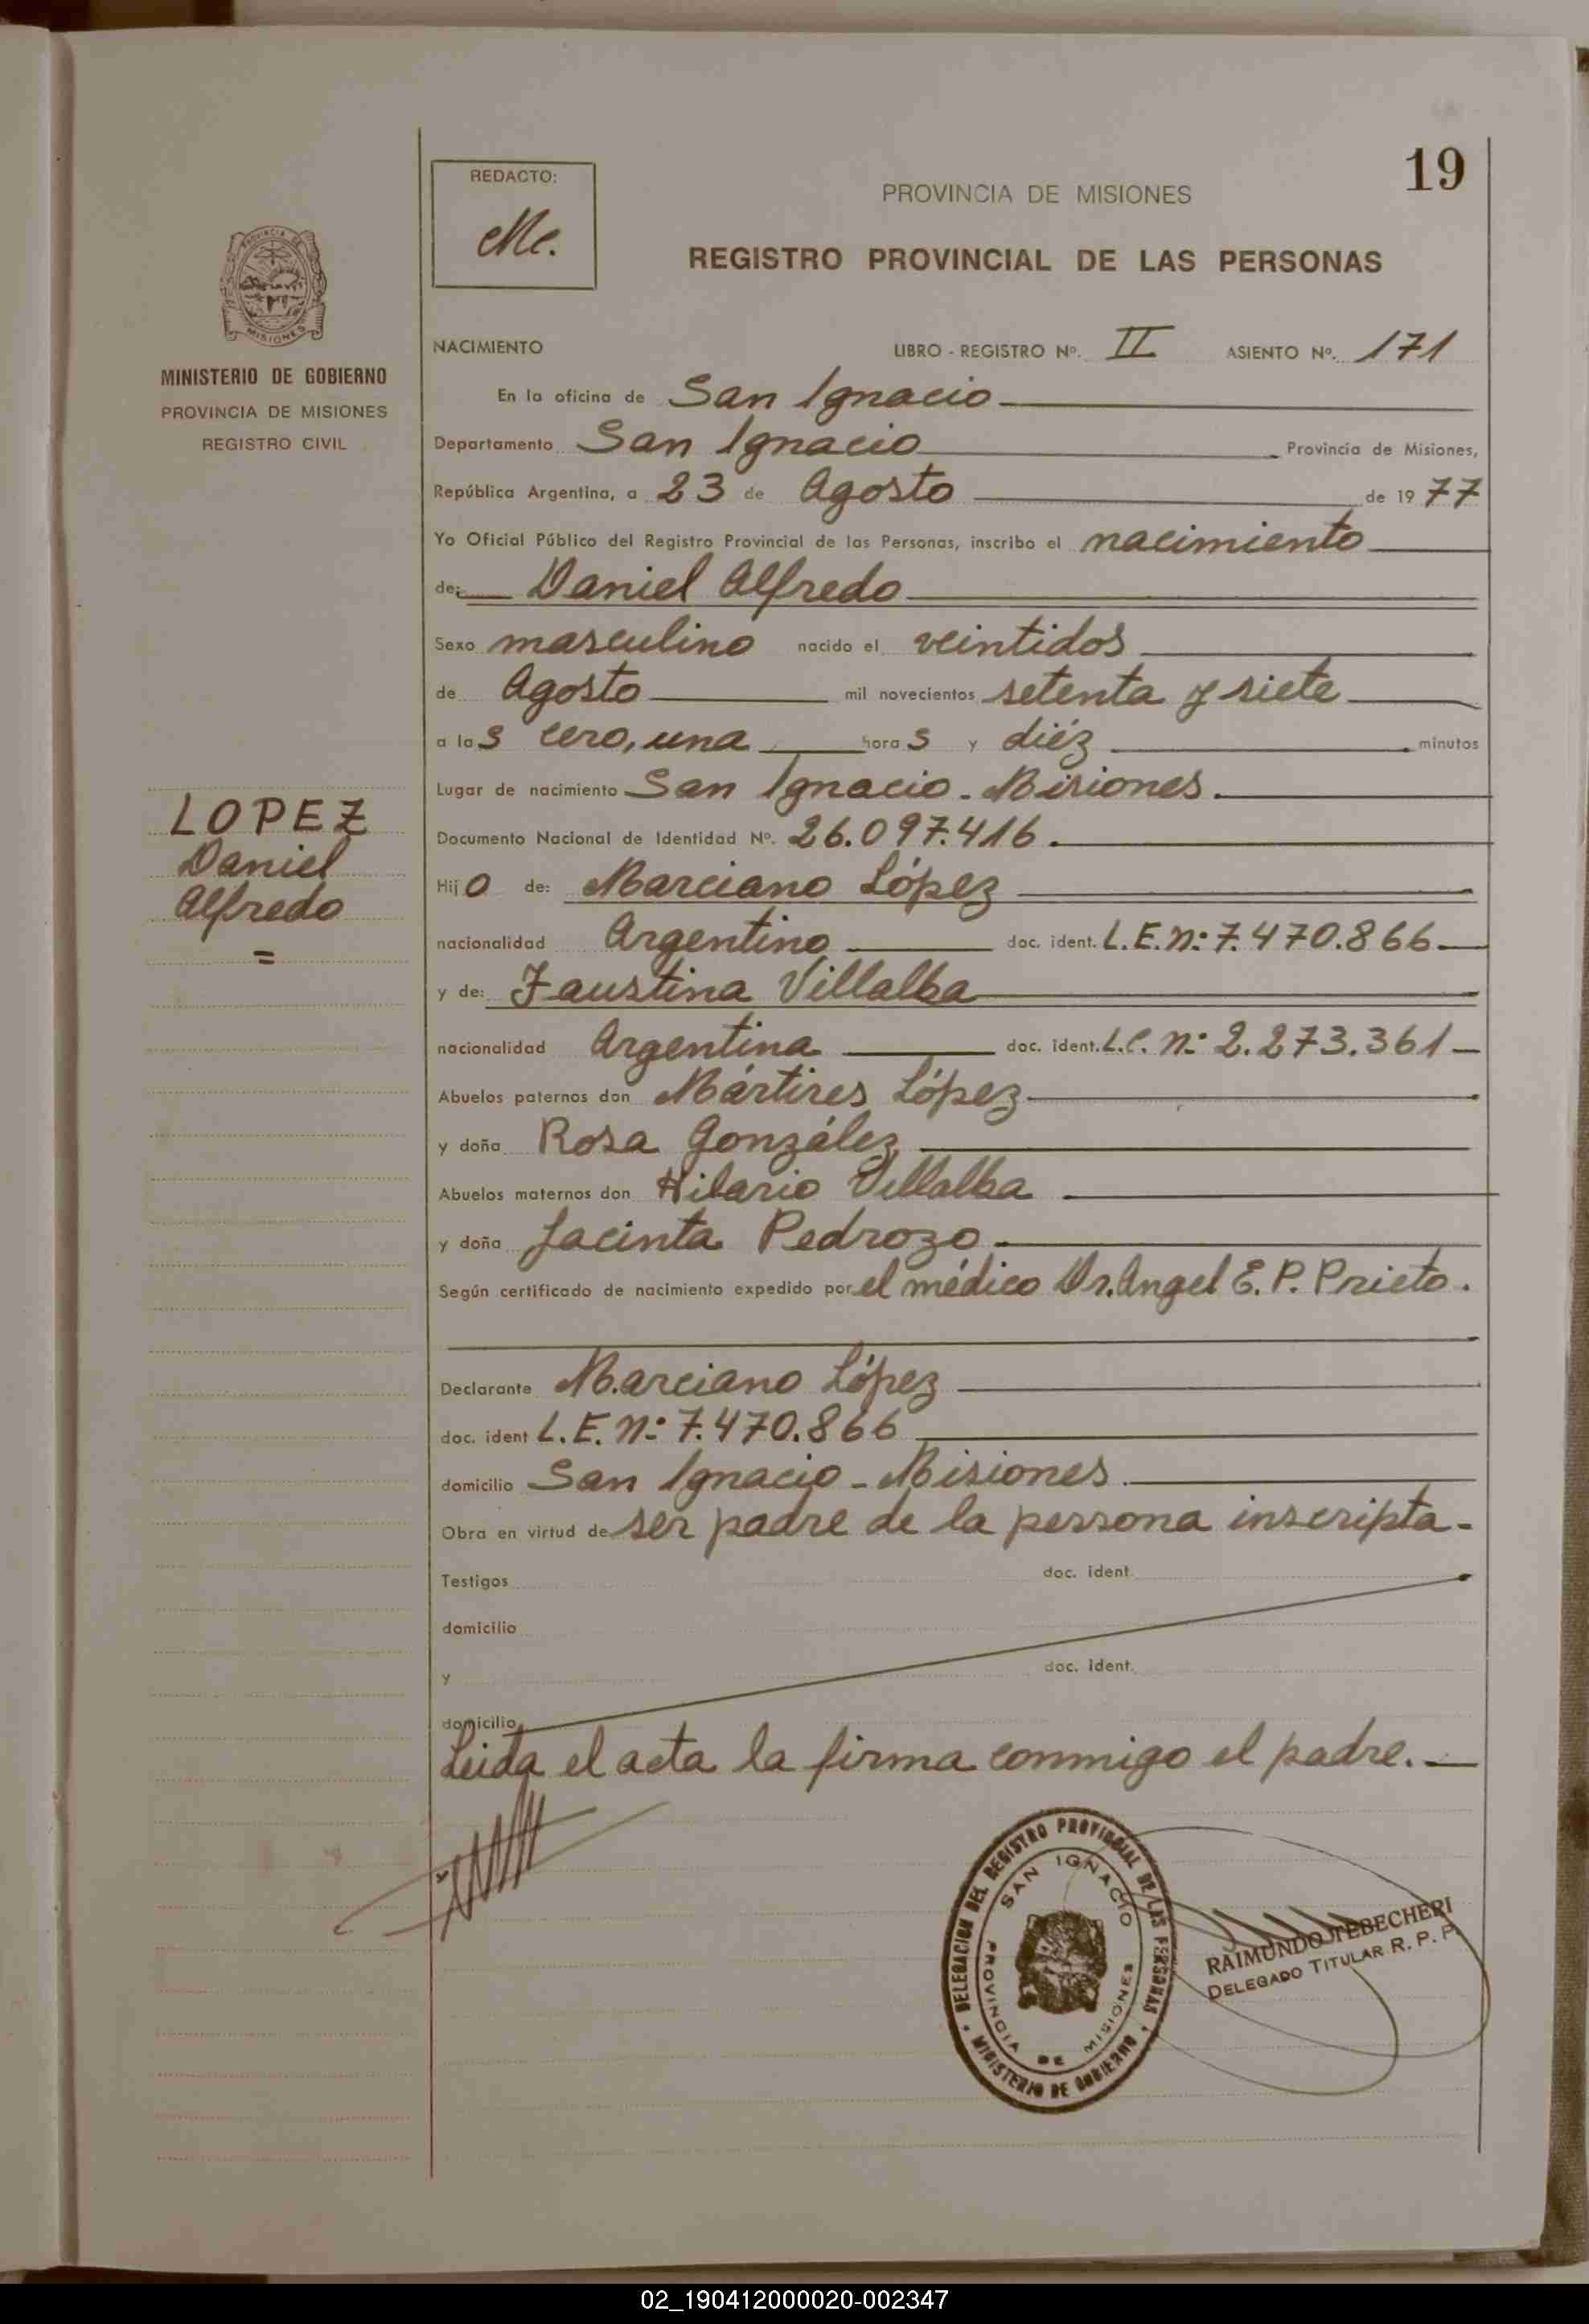 19
REDACTO:
Me.
PROVINCIA DE MISIONES
REGISTRO PROVINCIAL DE LAS PERSONAS
PROVINCIA DE MISIONES
MINISTERIO DE GOBIERNO
PROVINCIA DE MISIONES
REGISTRO CIVIL
LOPEZ
Daniel
Alfredo
=
NACIMIENTO LIBRO - REGISTRO Nº. II ASIENTO Nº. 171
En la oficina de San Ignacio
Departamento San Ignacio Provincia de Misiones,
República Argentina, a 23 de Agosto de 1977
Yo Oficial Público del Registro Provincial de las Personas, inscribo el nacimiento
de: Daniel Alfredo
Sexo masculino nacido el veintidos
de Agosto mil novecientos setenta y siete
a las cero, una horas y diéz minutos
Lugar de nacimiento San Ignacio - Misiones.
Documento Nacional de Identidad Nº. 26.097.416.
Hijo de: Marciano López
nacionalidad Argentino doc. ident. L.E. n: 7.470.866
y de: Faustina Villalba
nacionalidad Argentina doc. ident. L.C. n: 2.273.361
Abuelos paternos don Mártires López
y doña Rosa González
Abuelos maternos don Hilario Villalba
y doña Jacinta Pedrozo
Según certificado de nacimiento expedido por el médico Dr. Angel E. P. Prieto.
Declarante Marciano López
doc. ident L.E. n: 7.470.866
domicilio San Ignacio - Misiones
Obra en virtud de ser padre de la persona inscripta.
Testigos doc. ident.
domicilio
y doc. ident.
domicilio
Leida el acta la firma conmigo el padre.
DELEGACION DEL REGISTRO PROVINCIAL DE LAS PERSONAS
MINISTERIO DE GOBIERNO
SAN IGNACIO
PROVINCIA DE MISIONES
RAIMUNDO TEBECHERI
DELEGADO TITULAR R. P. P.
02_190412000020-002347